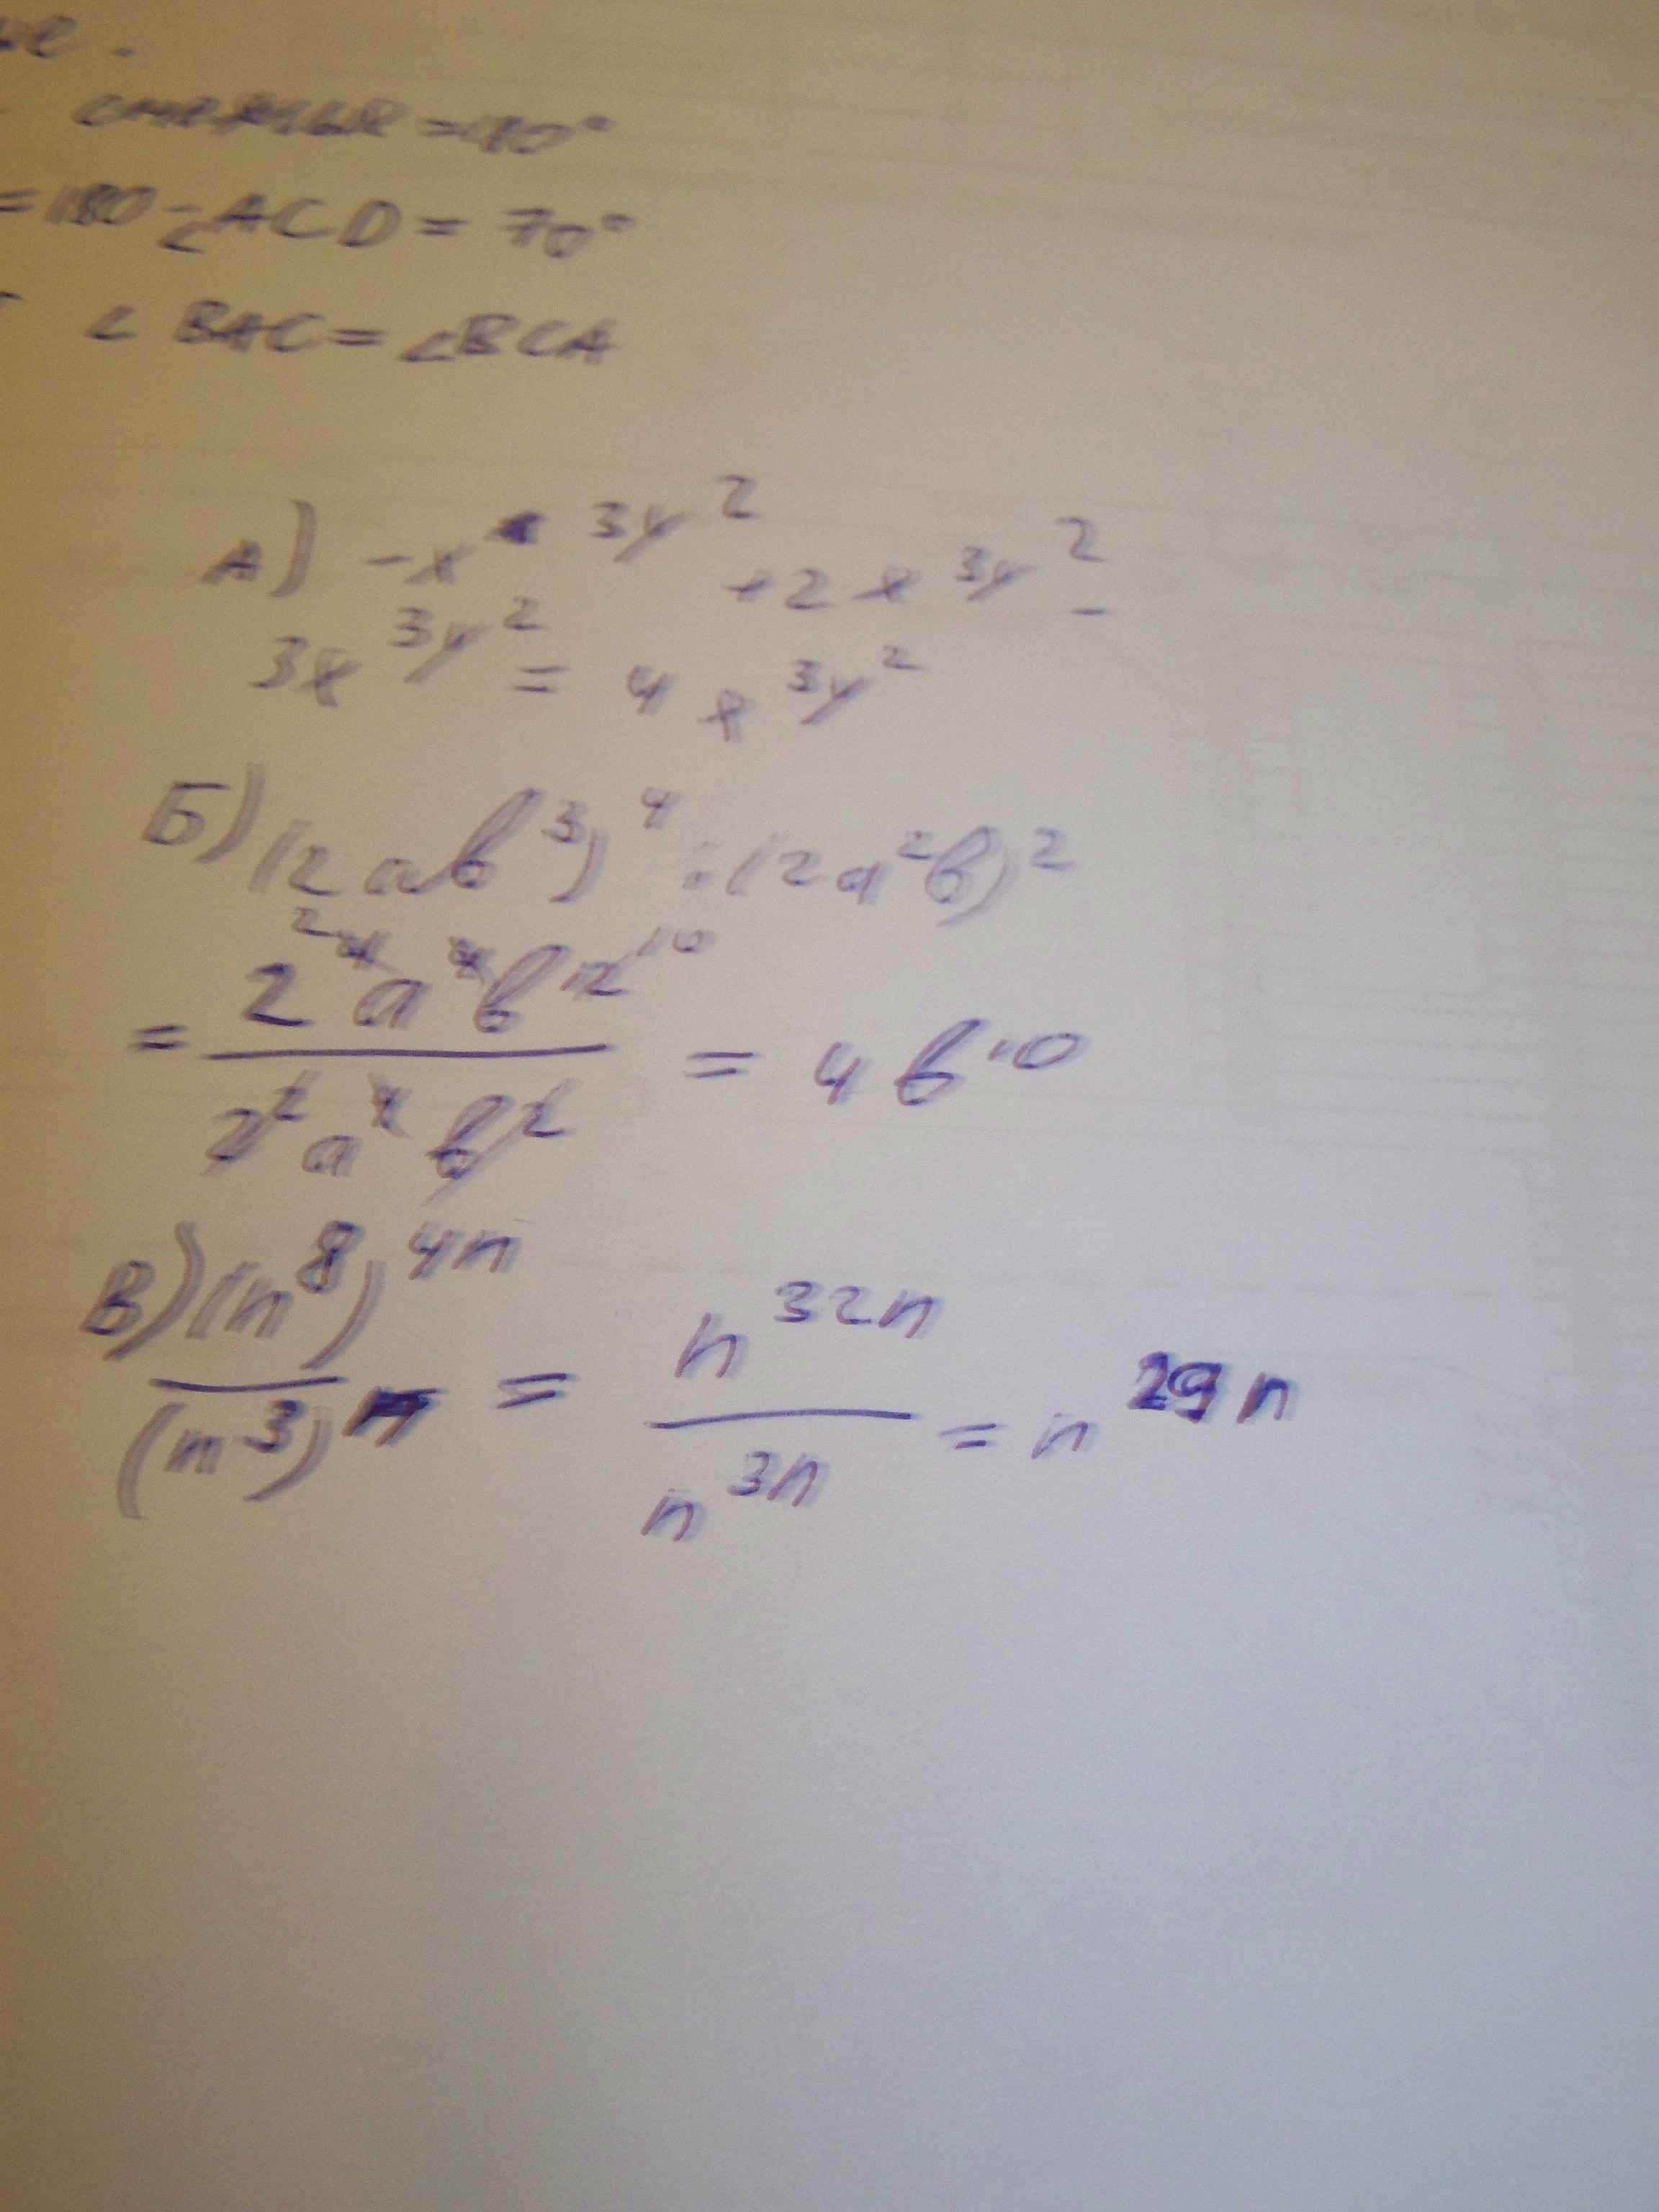 ые.
смежные = 180°
= 180 - ∠ACD = 70°
∠ BAC = ∠BCA
А) -x^3y^2 + 2x^3y^2 -
3x^3y^2 = 4x^3y^2
Б) (2ab^3)^4 : (2a^2b)^2
= 2^4a^4b^12 / 2^2a^4b^2 = 4b^10
В) (n^8)^4n / (n^3)^n = n^32n / n^3n = n^29n